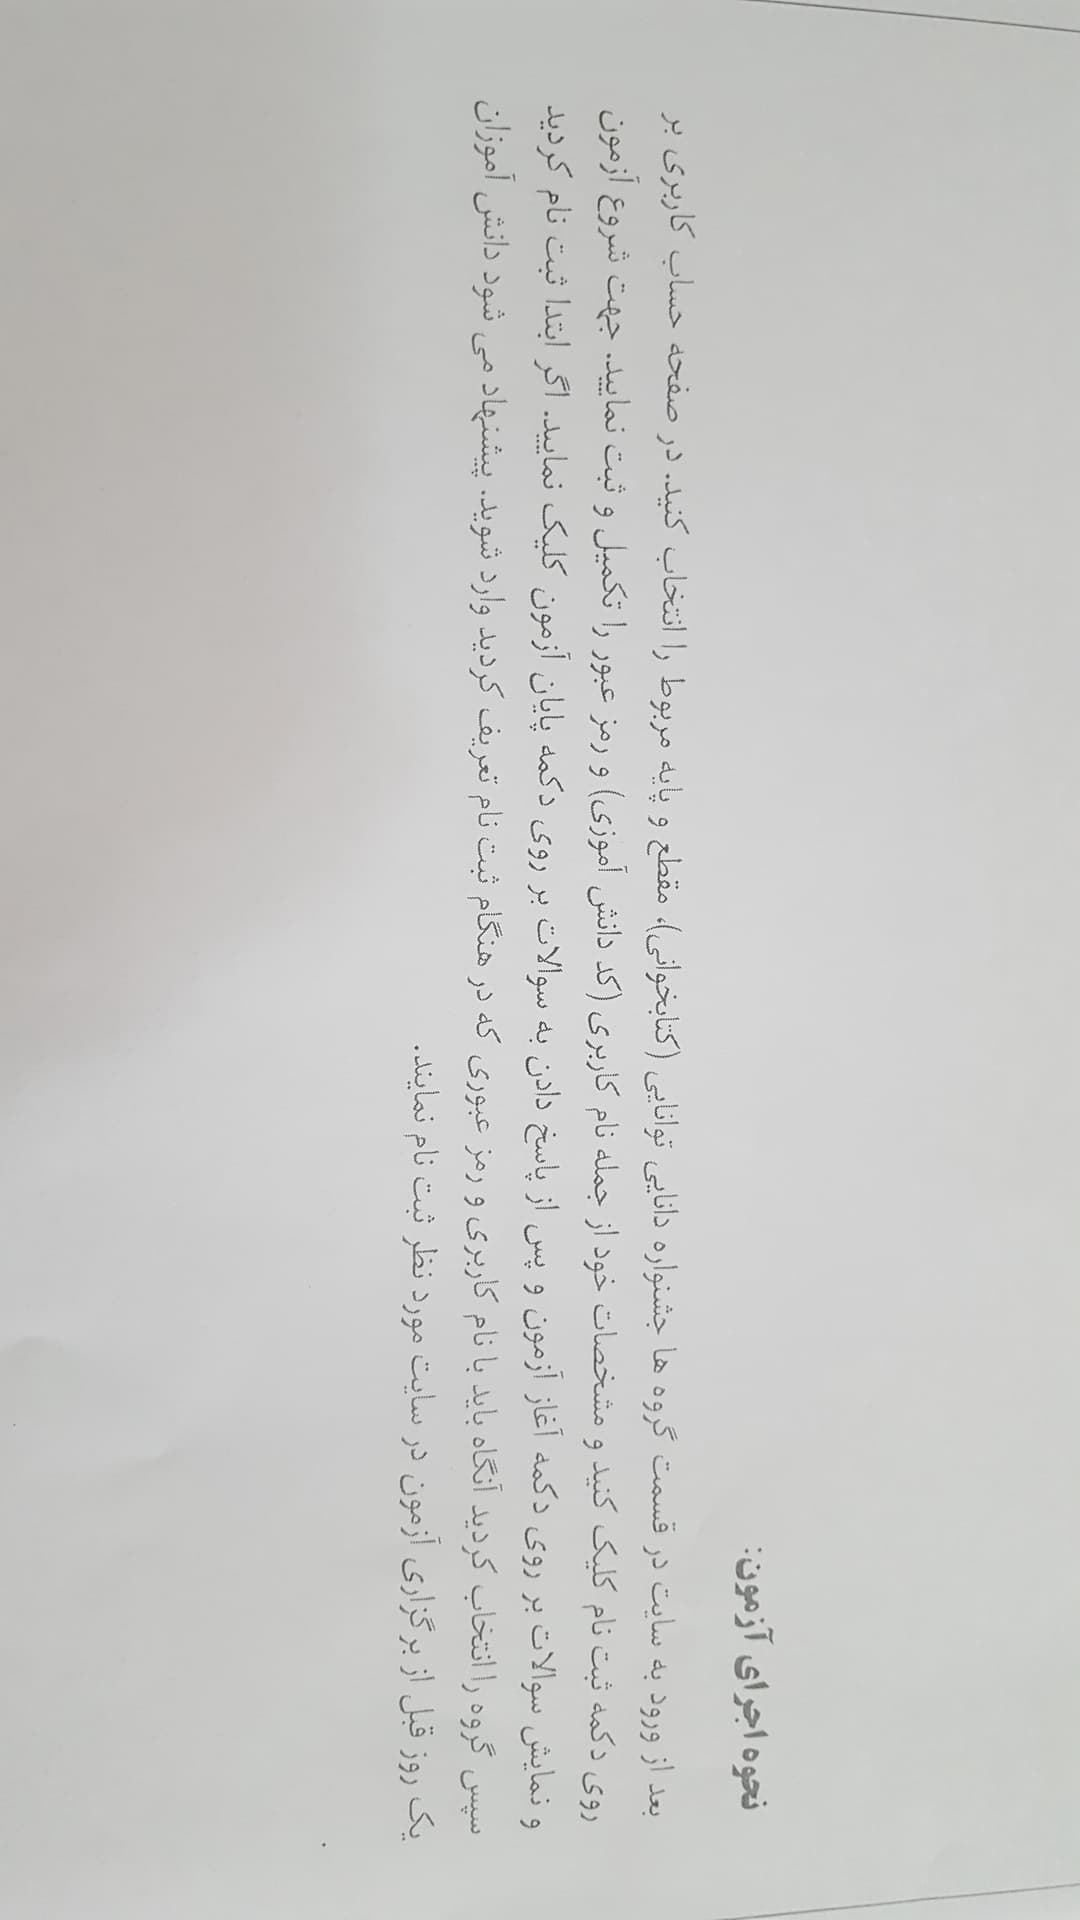 نحوه اجرای آزمون:
بعد از ورود به سایت در قسمت گروه ها جشنواره دانایی توانایی (کتابخوانی)، مقطع و پایه مربوط را انتخاب کنید. در صفحه حساب کاربری بر
روی دکمه ثبت نام کلیک کنید و مشخصات خود از جمله نام کاربری (کد دانش آموزی) و رمز عبور را تکمیل و ثبت نمایید. جهت شروع آزمون
و نمایش سوالات بر روی دکمه آغاز آزمون و پس از پاسخ دادن به سوالات بر روی دکمه پایان آزمون کلیک نمایید. اگر ابتدا ثبت نام کردید
سپس گروه را انتخاب کردید آنگاه باید با نام کاربری و رمز عبوری که در هنگام ثبت نام تعریف کردید وارد شوید. پیشنهاد می شود دانش آموزان
یک روز قبل از برگزاری آزمون در سایت مورد نظر ثبت نام نمایند.